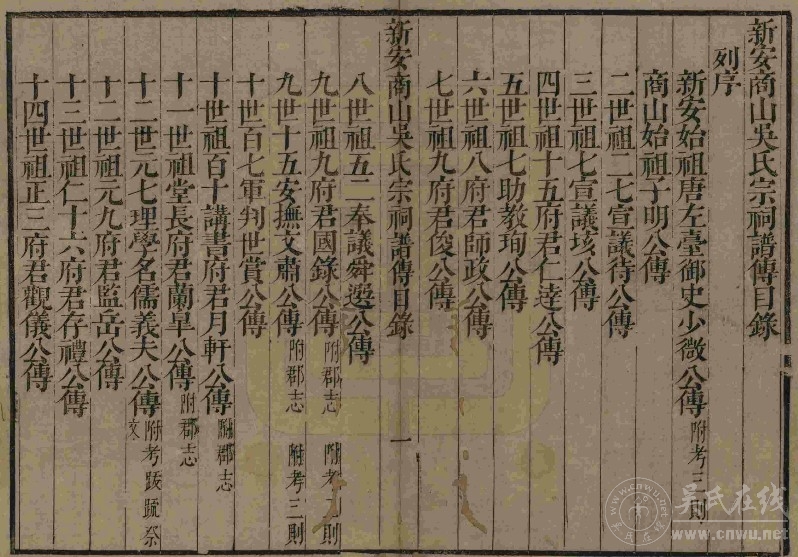 新安商山吳氏宗祠譜傳目錄
列序
新安始祖唐左臺御史少微公傳 附考二則
商山始祖子明公傳
二世祖二七宣議待公傳
三世祖七宣議垓公傳
四世祖十五府君仁逹公傳
五世祖七助教珣公傳
六世祖八府君師政公傳
七世祖九府君俊公傳
新安商山吳氏宗祠譜傳目錄 一
八世祖五二奉議舜選公傳
九世祖九府君國錄公傳 附郡志 附考二則
九世十五安撫文肅公傳 附郡志 附考三則
十世百七軍判世賞公傳
十世祖百十講書府君月軒公傳 附郡志
十一世祖堂長府君蘭皐公傳 附郡志
十二世元七理學名儒義夫公傳 附考跋疏祭文
十二世祖元九府君監岳公傳
十三世祖仁十六府君存禮公傳
十四世祖正三府君觀儀公傳
吴氏在线
www.cnwu.net